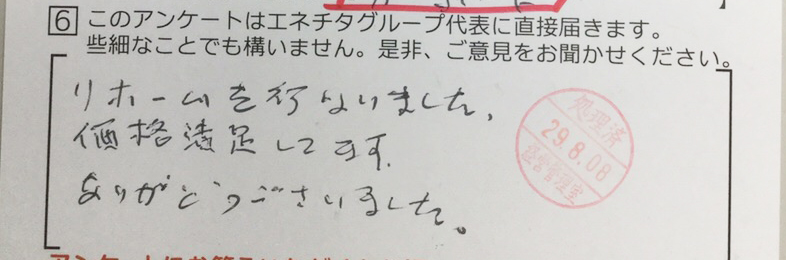 6 このアンケートはエネチタグループ代表に直接届きます。
些細なことでも構いません。是非、ご意見をお聞かせください。
リホームを行ないました。
価格満足してます.
ありがとうございました。
処理済
29.8.08
経営管理室